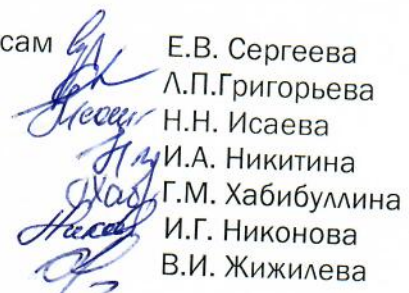 сам Е.В. Сергеева
Л.П.Григорьева
Н.Н. Исаева
И.А. Никитина
Г.М. Хабибуллина
И.Г. Никонова
В.И. Жижилева